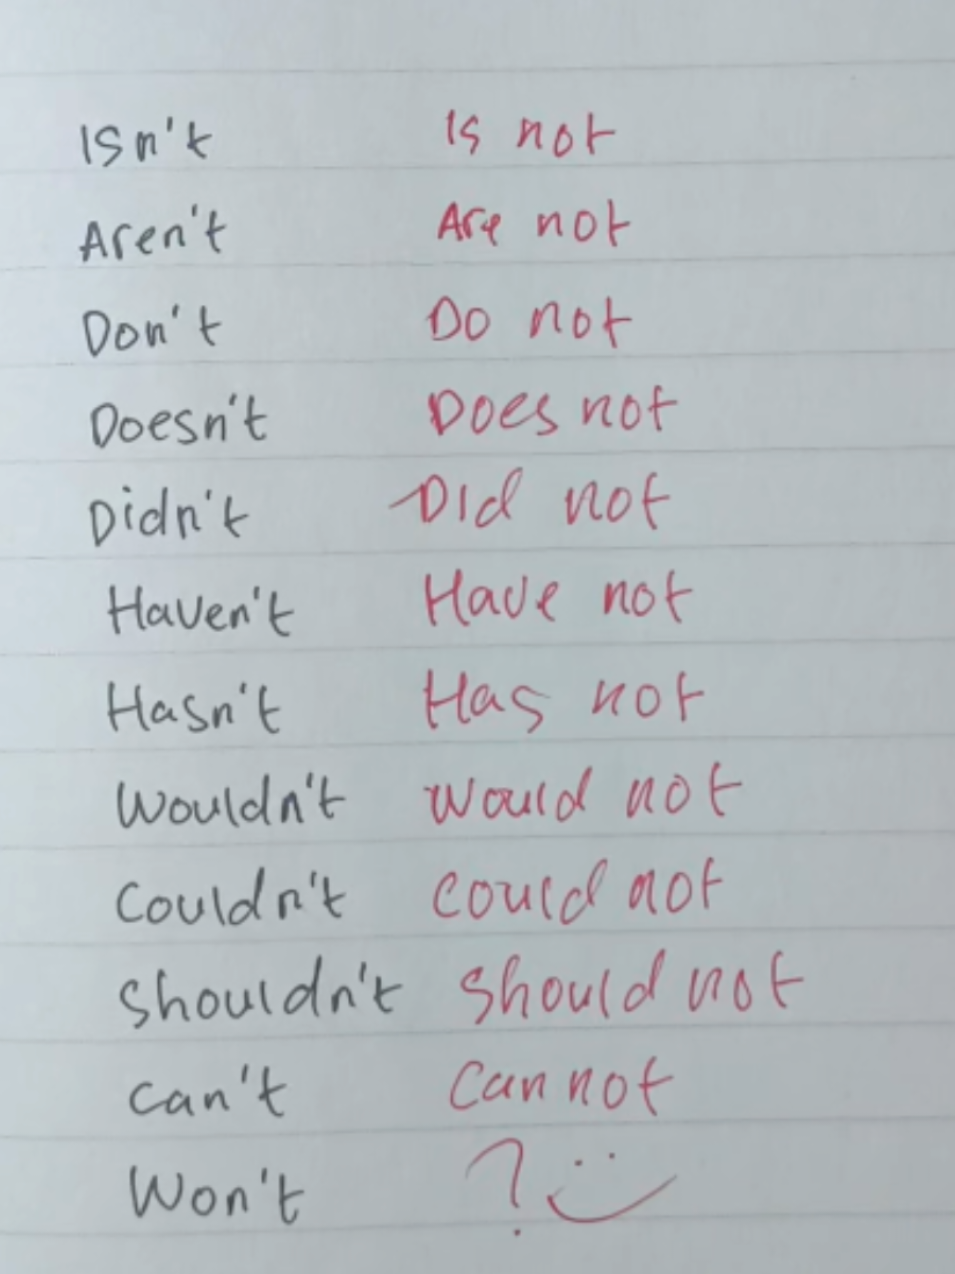 Isn't Is not
Aren't Are not
Don't Do not
Doesn't Does not
Didn't Did not
Haven't Have not
Hasn't Has not
Wouldn't Would not
Couldn't Could not
Shouldn't Should not
Can't Can not
Won't ?